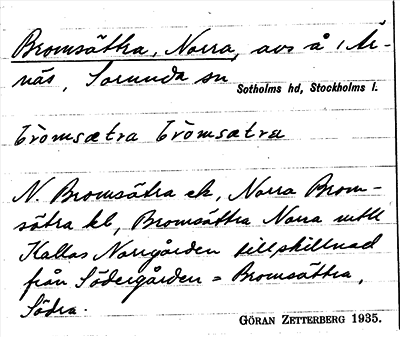 Bromsättra, Norra, avs å 1 År-
näs, Sorunda sn
Sotholms hd, Stockholms l.
bròmsætra bròmsætra
N. Bromsätra ek, Norra Brom-
sätra kb, Bromsättra Norra mtll
Kallas Norrgården till skillnad
från Södergården = Bromsättra,
Södra.
GÖRAN ZETTERBERG 1935.